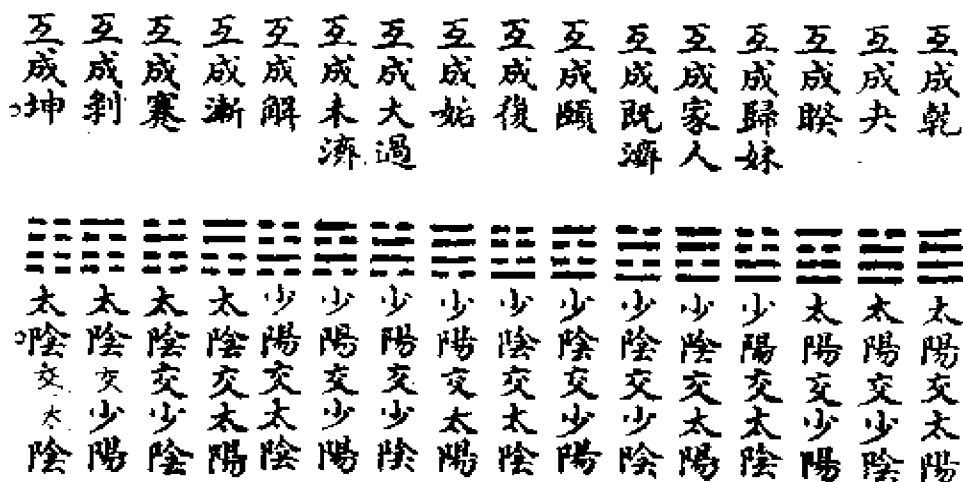 互成乾
互成夬
互成睽
互成歸妹
互成家人
互成既濟
互成頤
互成復
互成姤
互成大過
互成未濟
互成解
互成漸
互成蹇
互成剝
互成坤
太陽交太陽
太陽交少陰
太陽交少陽
少陽交太陰
少陰交太陽
少陰交少陰
少陰交少陽
少陰交太陰
少陽交太陽
少陽交少陰
少陽交少陽
少陽交太陰
太陰交太陽
太陰交少陰
太陰交少陽
太陰交太陰